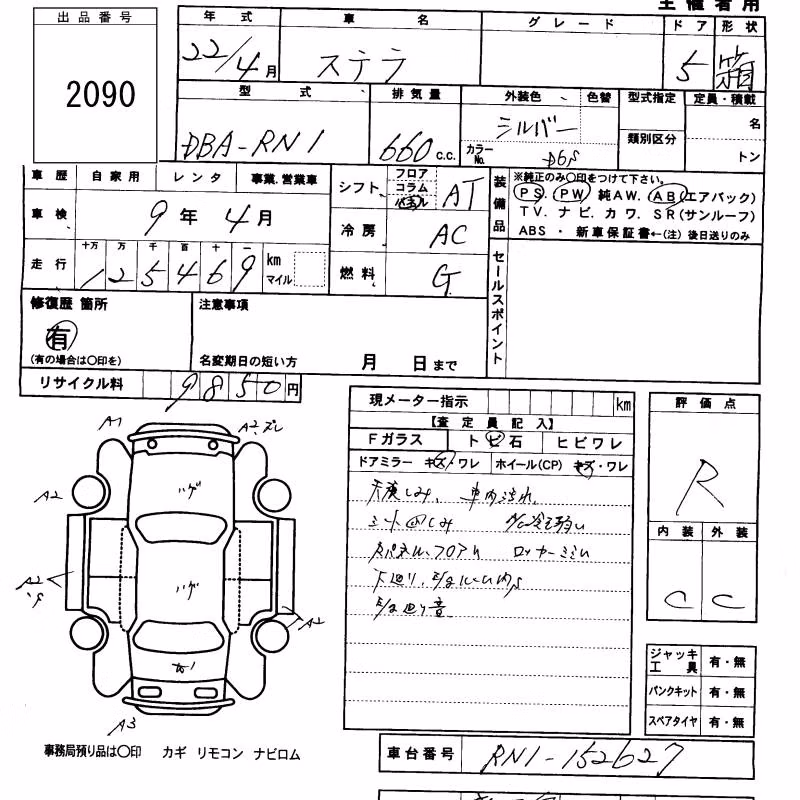 主催者用
出品番号
2090
年式 車名 グレード ドア 形状
22/4月 ステラ 5 箱
型式 排気量 外装色 色替 型式指定 定員・積載
DBA-RN1 660 C.C. シルバー カラーNo. D6S 類別区分 名
トン
車歴 自家用 レンタ 事業.営業車
車検 9年4月
走行 十万 万 千 百 十 一
125469 km マイル
シフト フロア コラム パネル AT
冷房 AC
燃料 G
装備品 ※純正のみ○印をつけて下さい。
PS. PW 純AW. AB(エアバック)
TV. ナビ. カワ. SR(サンルーフ)
ABS ・ 新車保証書←(注) 後日送りのみ
セールスポイント
修復歴 箇所
有
(有の場合は○印を)
注意事項
名変期日の短い方 月 日まで
リサイクル料 9850円
現メーター指示 km
【査定員記入】
Fガラス トビ石 ヒビワレ
ドアミラー キズ・ワレ ホイール(CP) キズ・ワレ
天張しみ、車内汚れ
シート凹しみ
ロッカー
下廻り、
音
評価点
R
内装 外装
C C
ジャッキ工具 有・無
パンクキット 有・無
スペアタイヤ 有・無
A1
A2.ズレ
A2
ハゲ
A2
ハゲ
A2
A3
事務局預り品は○印 カギ リモコン ナビロム
車台番号 RN1-152627